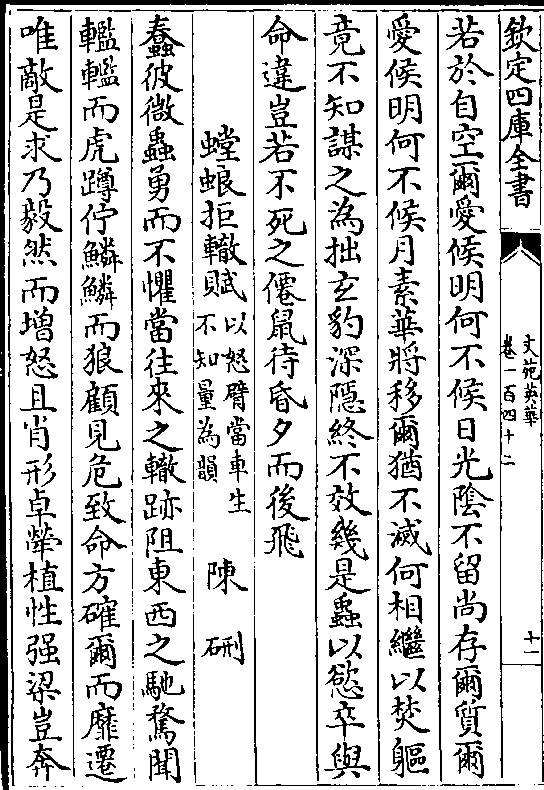 欽定四庫全書
文苑英華
卷一百四十二
十一
若於自空爾愛候明何不候日光陰不留尚存爾質爾
愛候明何不候月素華將移爾猶不滅何相繼以焚軀
竟不知謀之為拙玄豹深隱終不效幾是蟲以慾卒與
命違豈若不死之僊鼠待昏夕而後飛
螳蜋拒轍賦以怒臂當車生不知量為韻 陳硎
蠢彼微蟲勇而不懼當往來之轍跡阻東西之馳騖聞
轞轞而虎蹲佇鱗鱗而狼顧見危致命方確爾而靡遷
唯敵是求乃毅然而增怒且肖形卓犖植性强梁豈奔